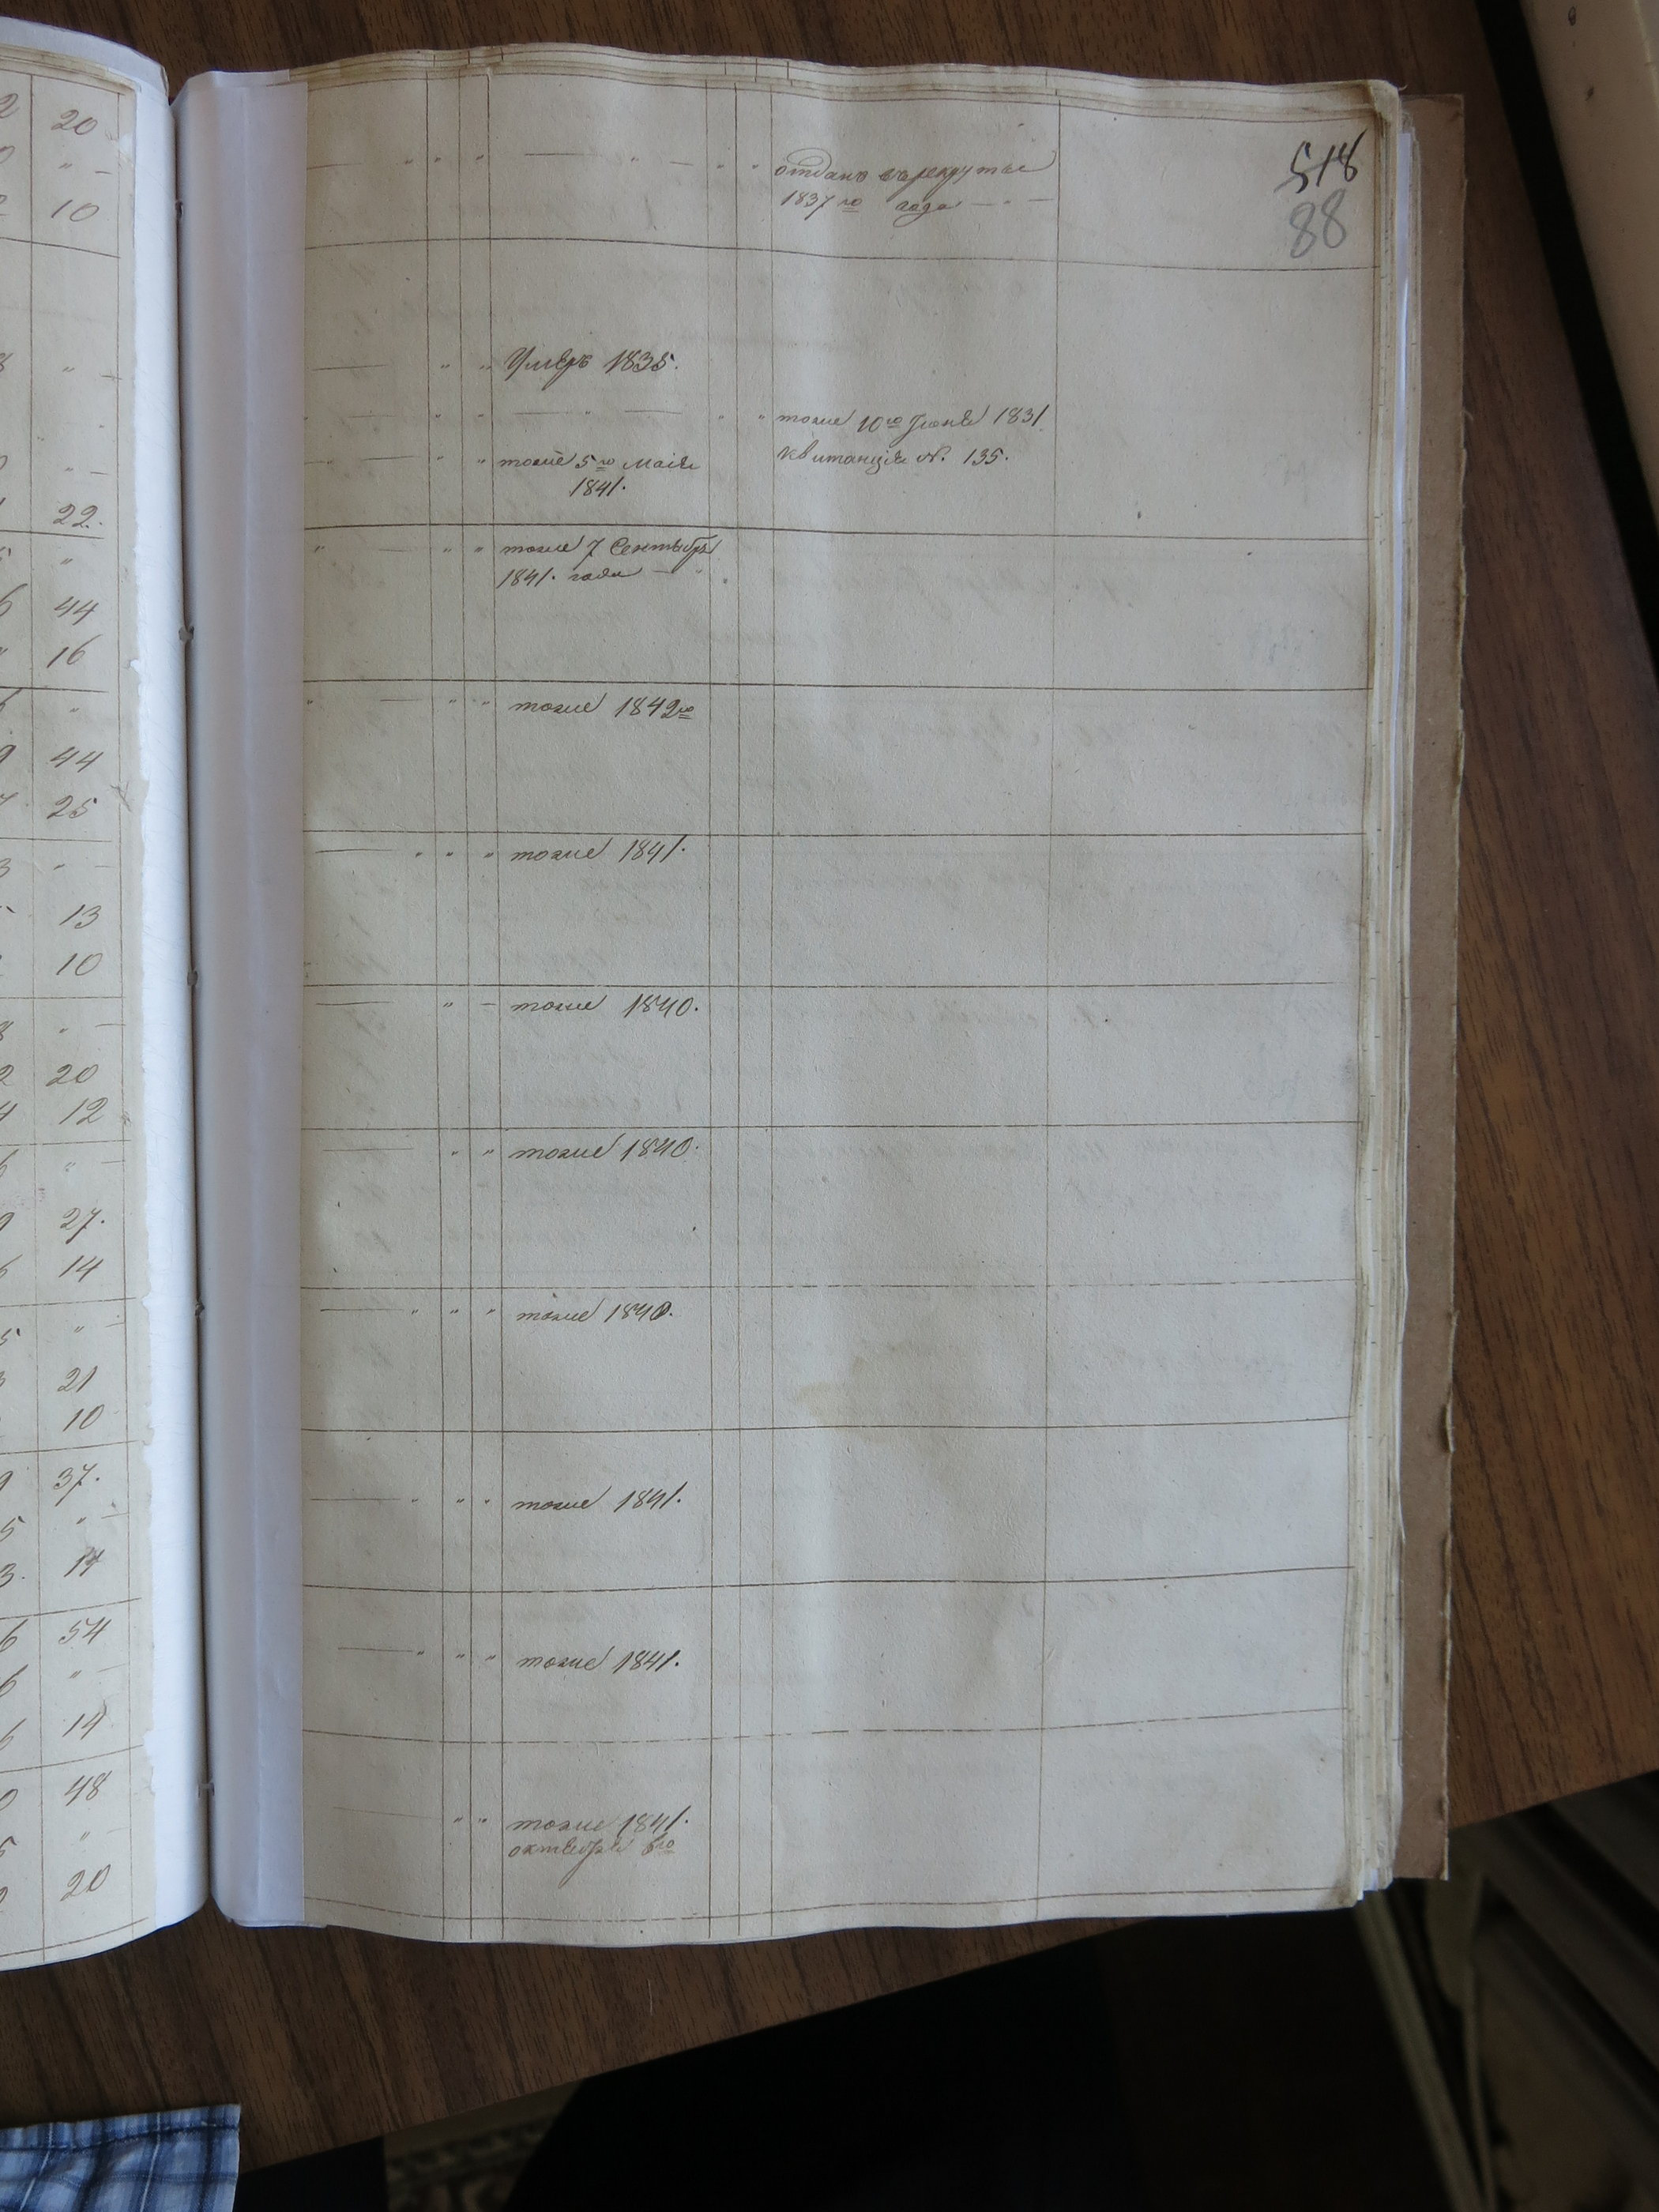 20
10
22.
44
16
44
25
13
10
20
12
27.
14
21
10
37.
14
54
14
48
20
518
88
отданъ въ рекруты
1837го года
Умеръ 1835.
тоже 10го Іюня 1831.
квитанція №. 135.
тоже 5го Маія
1841.
тоже 7 Сентября
1841. года
тоже 1842го
тоже 1841.
тоже 1840.
тоже 1840.
тоже 1840.
тоже 1841.
тоже 1841.
тоже 1841.
октября 6го